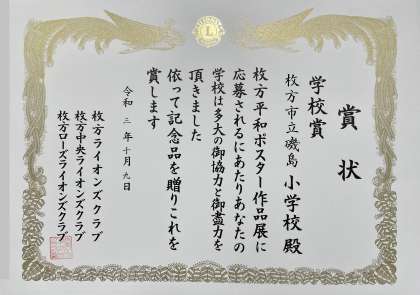 賞状
学校賞
枚方市立磯島小学校殿
枚方平和ポスター作品展に
応募されるにあたりあなたの
学校は多大の御協力と御盡力を
頂きました
依って記念品を贈りこれを
賞します
令和三年十月九日
枚方ライオンズクラブ
枚方中央ライオンズクラブ
枚方ローズライオンズクラブ